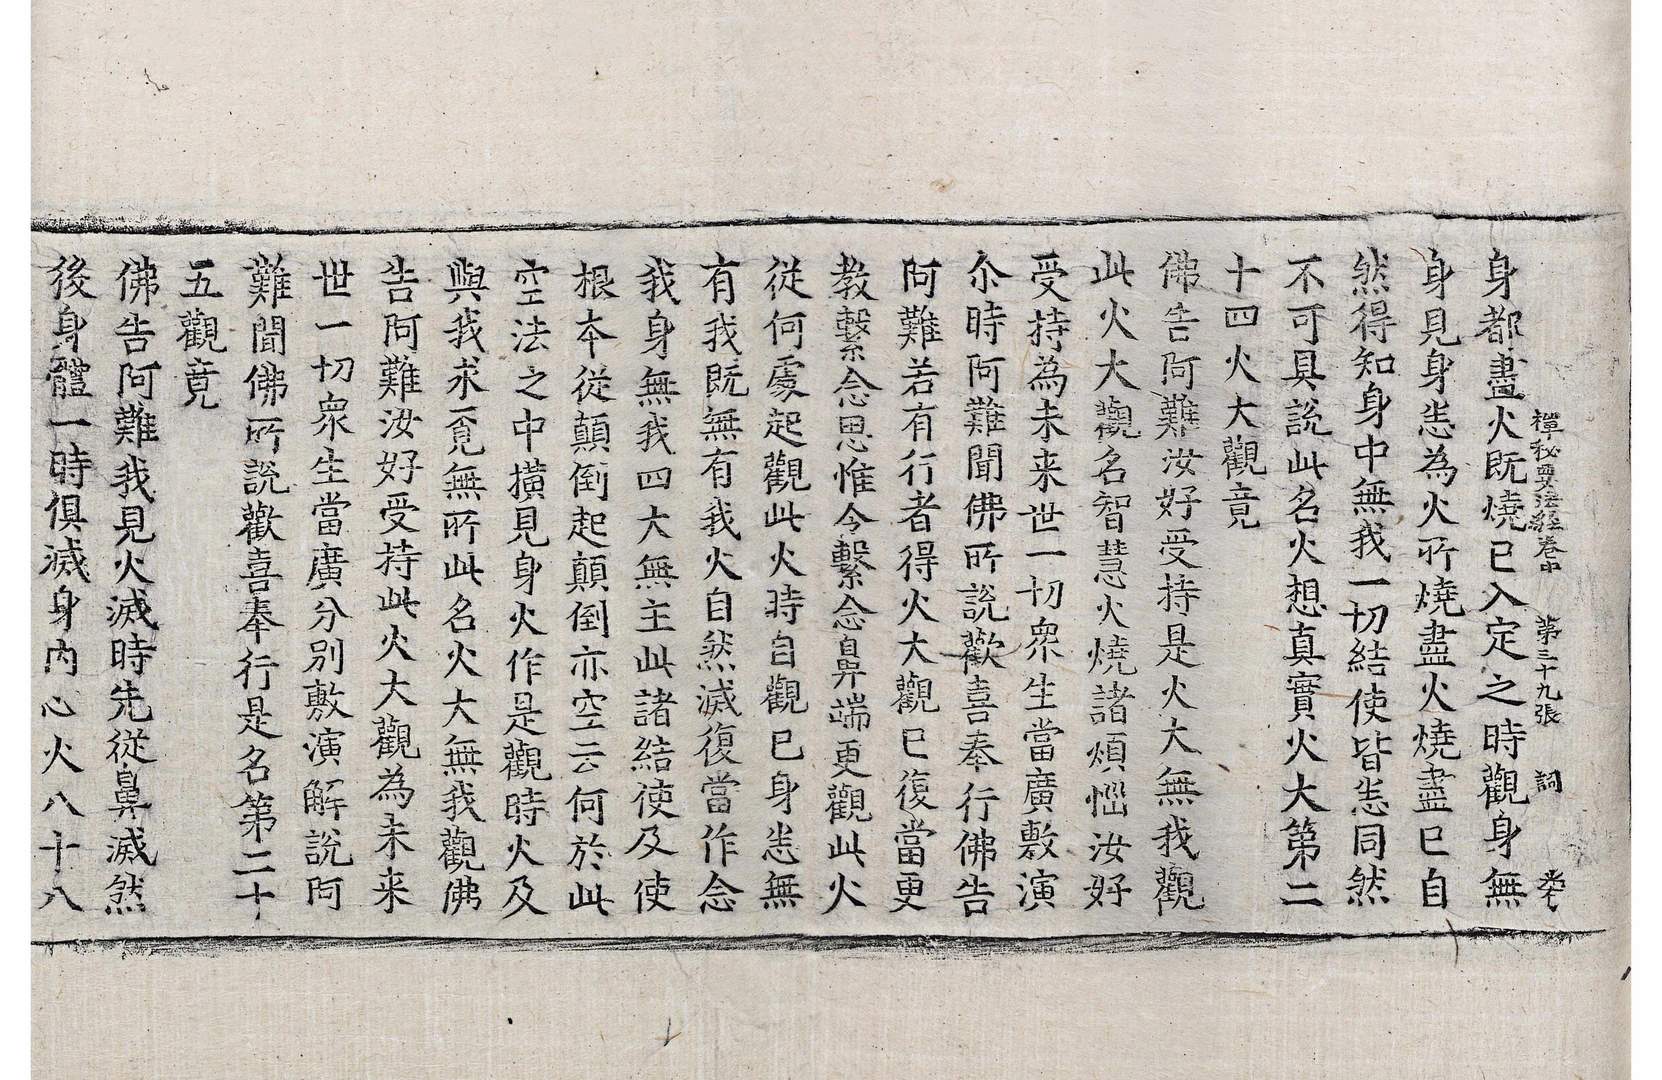 禪秘要法經卷中 第三十九張 詞
身都盡火既燒已入定之時觀身無
身見身悉為火所燒盡火燒盡已自
然得知身中無我一切結使皆悉同然
不可具說此名火想真實火大第二
十四火大觀竟
佛告阿難汝好受持是火大無我觀
此火大觀名智慧火燒諸煩惱汝好
受持為未来世一切衆生當廣敷演
尒時阿難聞佛所說歡喜奉行佛告
阿難若有行者得火大觀已復當更
教繫念思惟令繫念鼻端更觀此火
從何處起觀此火時自觀已身悉無
有我既無有我火自然滅復當作念
我身無我四大無主此諸結使及使
根本從顛倒起顛倒亦空云何於此
空法之中橫見身火作是觀時火及
與我求覓無所此名火大無我觀佛
告阿難汝好受持此火大觀為未来
世一切衆生當廣分別敷演解說阿
難聞佛所說歡喜奉行是名第二十
五觀竟
佛告阿難我見火滅時先從鼻滅然
後身體一時俱滅身內心火八十八